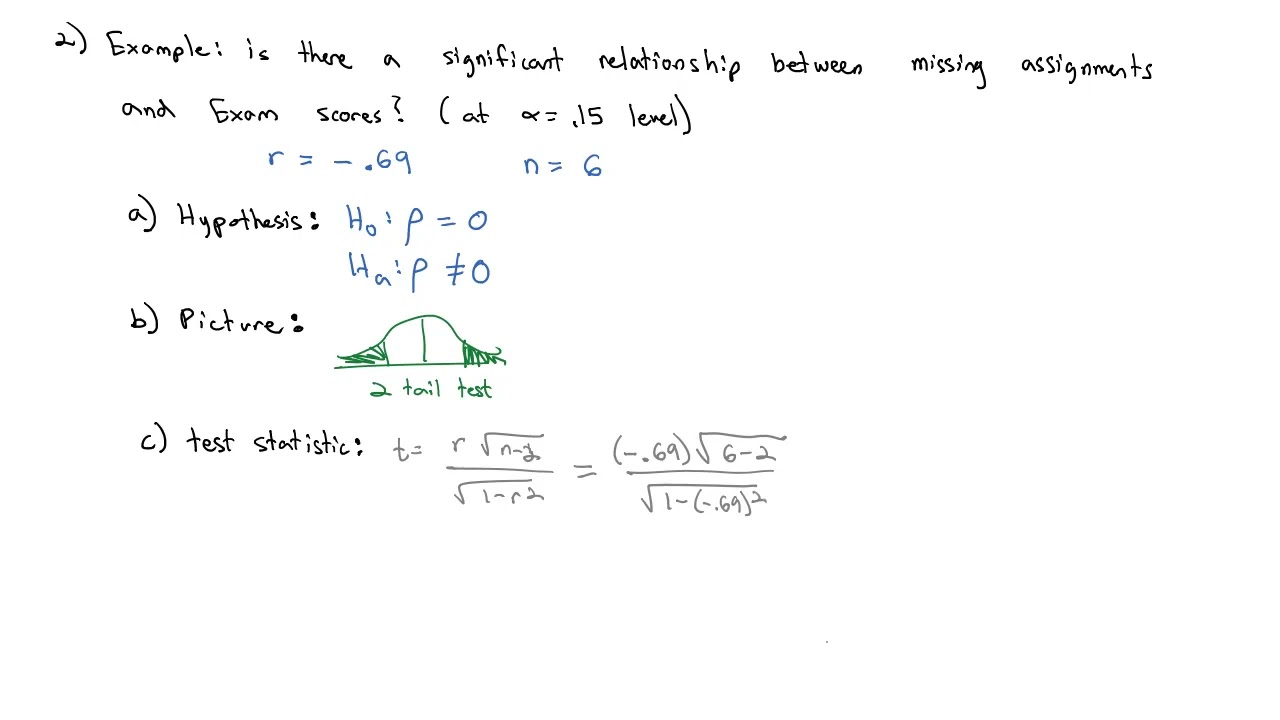 2) Example: is there a significant relationship between missing assignments
and Exam scores? (at α = .15 level)
r = -.69 n = 6
a) Hypothesis: H₀: ρ = 0
Hₐ: ρ ≠ 0
b) Picture:
2 tail test
c) test statistic: t = r √(n-2) / √(1-r²) = (-.69)√(6-2) / √(1-(-.69)²)